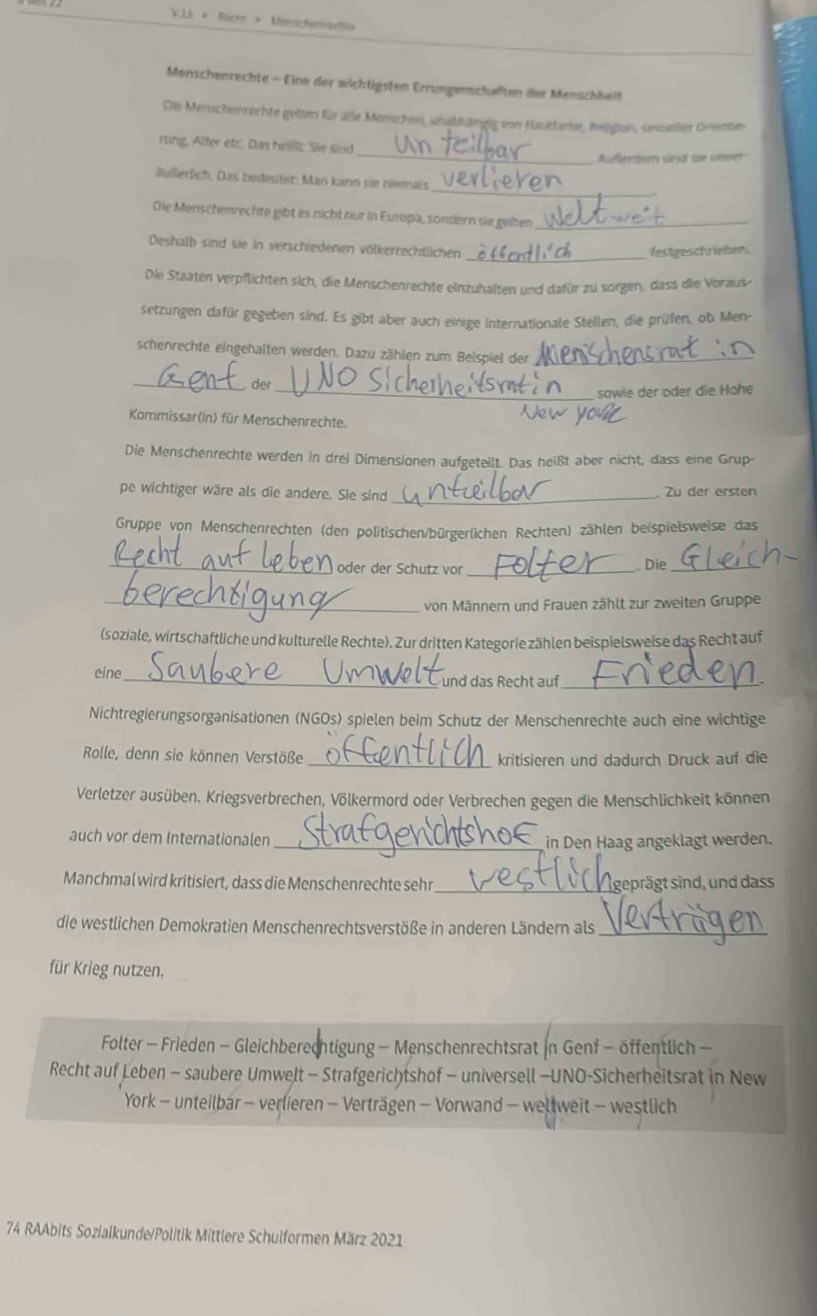 V.16 + Recht > Menschenrechte
Menschenrechte – Eine der wichtigsten Errungenschaften der Menschheit
Die Menschenrechte gelten für alle Menschen, unabhängig von Hautfarbe, Religion, sexueller Orientie-
rung, Alter etc. Das heißt: Sie sind un teilbar Außerdem sind sie unver-
äußerlich. Das bedeutet: Man kann sie niemals verlieren
Die Menschenrechte gibt es nicht nur in Europa, sondern sie gelten weltweit
Deshalb sind sie in verschiedenen völkerrechtlichen öffentlich festgeschrieben.
Die Staaten verpflichten sich, die Menschenrechte einzuhalten und dafür zu sorgen, dass die Voraus-
setzungen dafür gegeben sind. Es gibt aber auch einige internationale Stellen, die prüfen, ob Men-
schenrechte eingehalten werden. Dazu zählen zum Beispiel der Menschensrat in
Genf der UNO Sicherheitsrat in sowie der oder die Hohe
New york
Kommissar(in) für Menschenrechte.
Die Menschenrechte werden in drei Dimensionen aufgeteilt. Das heißt aber nicht, dass eine Grup-
pe wichtiger wäre als die andere. Sie sind unteilbar . Zu der ersten
Gruppe von Menschenrechten (den politischen/bürgerlichen Rechten) zählen beispielsweise das
Recht auf leben oder der Schutz vor Folter . Die Gleich-
berechtigung von Männern und Frauen zählt zur zweiten Gruppe
(soziale, wirtschaftliche und kulturelle Rechte). Zur dritten Kategorie zählen beispielsweise das Recht auf
eine Saubere Umwelt und das Recht auf Frieden .
Nichtregierungsorganisationen (NGOs) spielen beim Schutz der Menschenrechte auch eine wichtige
Rolle, denn sie können Verstöße öffentlich kritisieren und dadurch Druck auf die
Verletzer ausüben. Kriegsverbrechen, Völkermord oder Verbrechen gegen die Menschlichkeit können
auch vor dem Internationalen Strafgerichtshof in Den Haag angeklagt werden.
Manchmal wird kritisiert, dass die Menschenrechte sehr westlich geprägt sind, und dass
die westlichen Demokratien Menschenrechtsverstöße in anderen Ländern als Verträgen
für Krieg nutzen.
Folter – Frieden – Gleichberechtigung – Menschenrechtsrat in Genf – öffentlich –
Recht auf Leben – saubere Umwelt – Strafgerichtshof – universell –UNO-Sicherheitsrat in New
York – unteilbar – verlieren – Verträgen – Vorwand – weltweit – westlich
74 RAAbits Sozialkunde/Politik Mittlere Schulformen März 2021